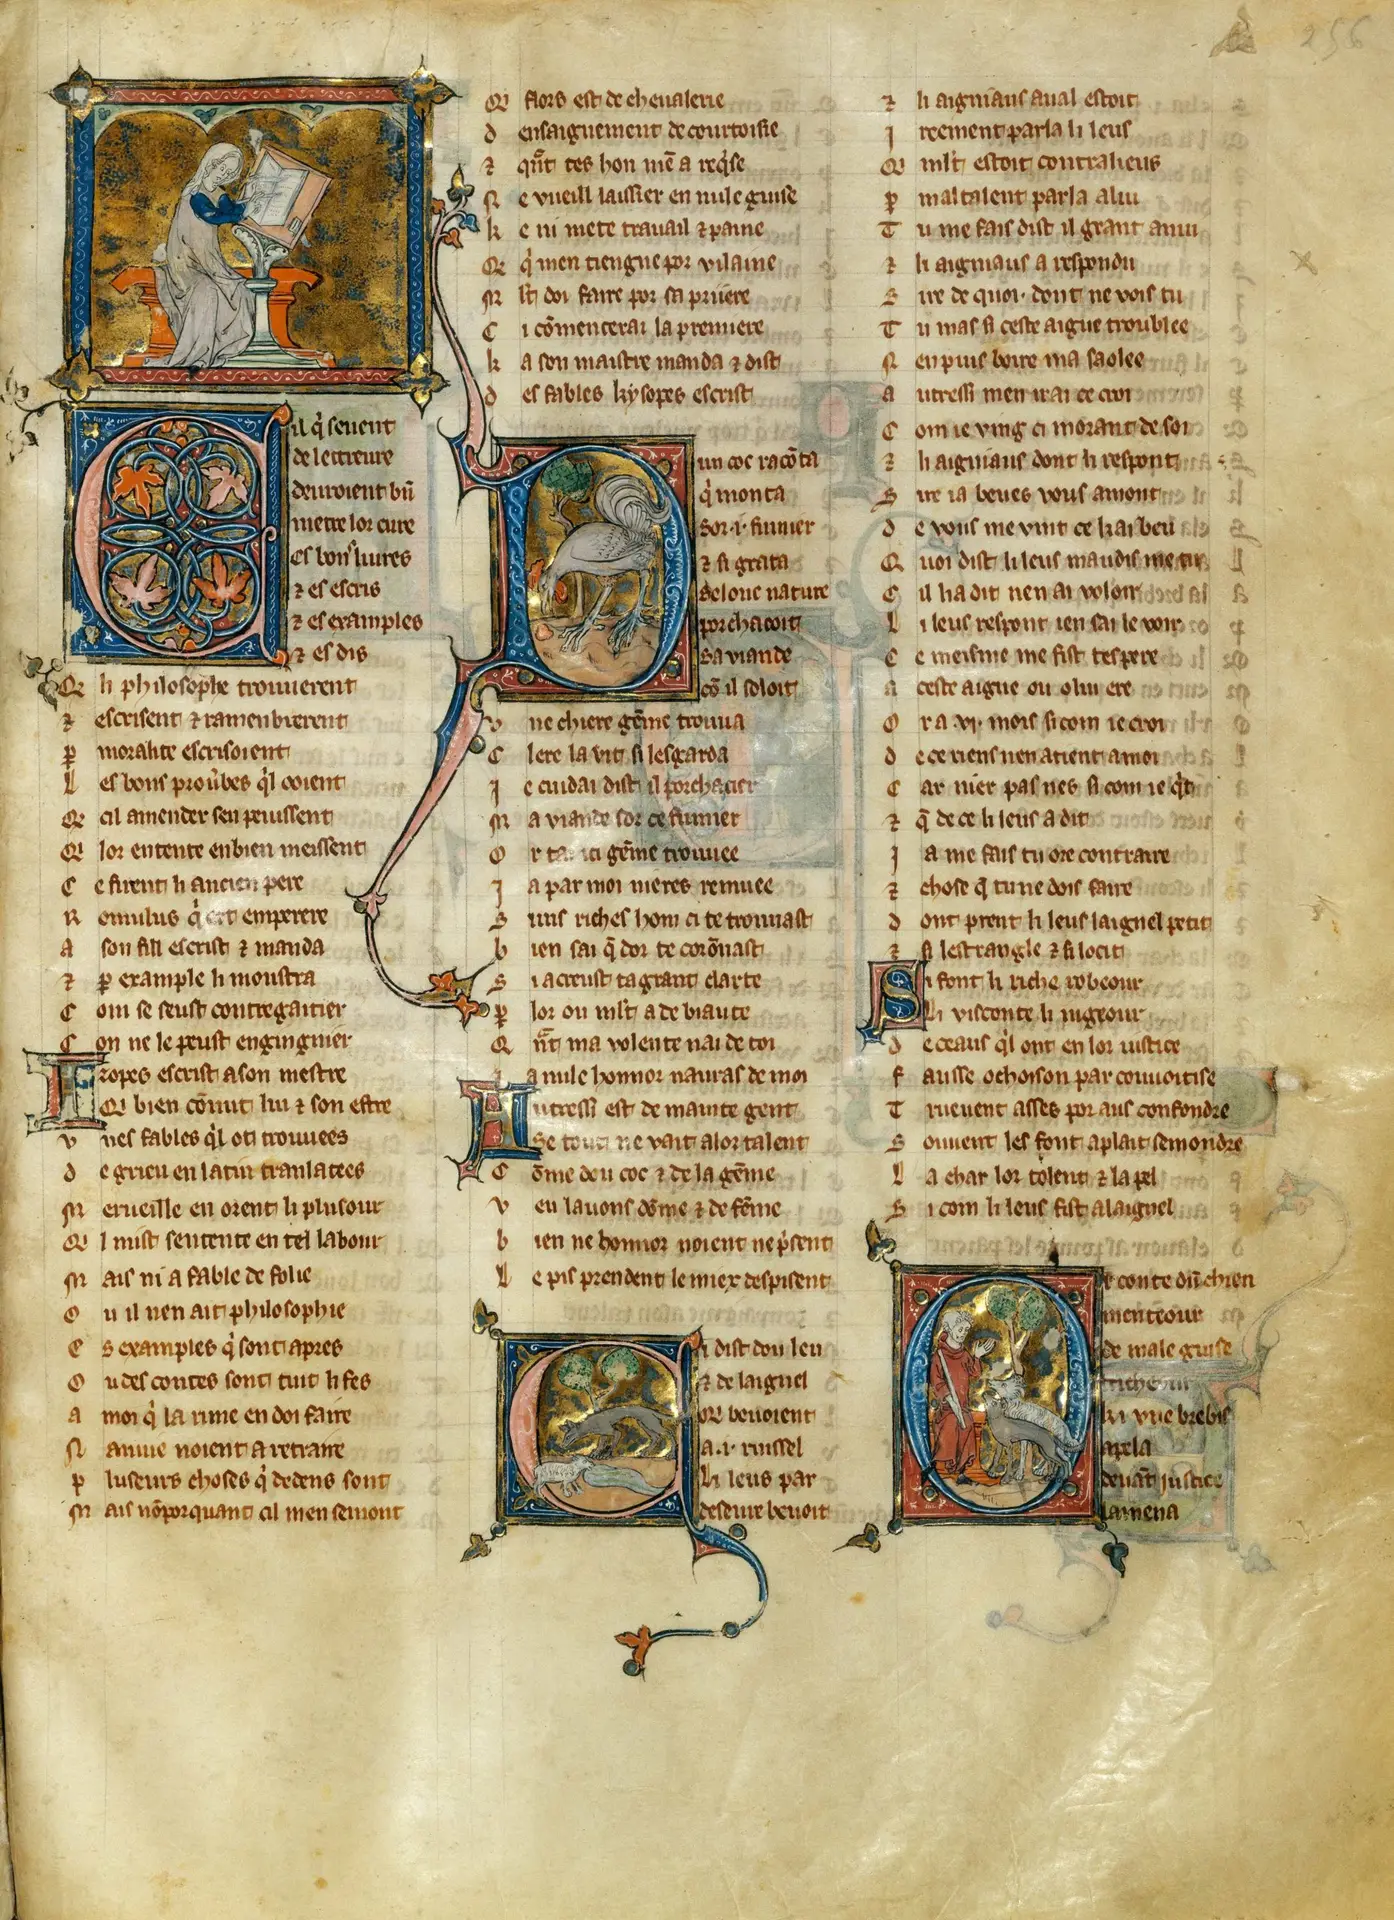 256
Cil q̃ seuent
de lettreure
deuroient bn̄
metre lor cure
es bons liures
⁊ es escris
⁊ es examples
⁊ es dis
Q li philosophe trouuerent
⁊ escrisent ⁊ ramenbrerent
p moralite escrisoient
L es bons prou̾bes q̃l ooient
Q cil amender sen peuissent
Q lor entente en bien meissent
C e firent li ancien pere
R omulus q̃ ert emperere
A son fill escrist ⁊ manda
⁊ p example li moustra
C om se seust contregaitier
C on ne le peust engingnier
Iropes escrist a son mestre
Q bien cōnut lui ⁊ son estre
v nes fables q̃l ot trouuees
d e griu en latin tranlatees
M erueille en orent li plusour
Q l mist sentente en tel labour
M ais ni a fable de folie
O u il nen ait philosophie
E s examples q̃ sont apres
O u des contes sont tuit li fes
A moi q̃ la rime en doi faire
N auiue noient a retraire
P luseurs choses q̃ dedens sont
M ais nōporquant cil men semont
Q flors est de cheualerie
d ensaignement de courtoisie
⁊ qñt tes hon mē a req̃se
N e vueill laissier en nule guise
k e ni mete trauail ⁊ paine
Q q̃ men tiengue por vilaine
M lt̄ doi faire por sa priiere
C i cōmencerai la premiere
k a son maistre manda ⁊ dist
d es fables k'ysopes escrist
Dun coc racōta
q̃ monta
Sor .i. fumier
⁊ si grata
Selonc nature
porchacoit
Sa viande
cō il soloit
v ne chiere gēme trouua
C lere la vit si lesgarda
J e cuidai dist il porchacier
M a viande sor ce fumier
O r tai ici gēme trouuee
J a par moi nieres remuee
S uns riches hom ci te trouuast
b ien sai q̃ dor te corōnast
S i acreust ta grant clarte
p lor ou mlt̄ a de biaute
Q ñt ma volente nai de toi
J a nule honnor nauras de moi
Autressi est de mainte gent
Se tout ne vait a lor talent
C ōme dou coc ⁊ de la gēme
v eu lauons dōme ⁊ de fēme
b ien ne honnor noient ne p̃sent
L e pis prendent le miex despisent
Ci dist dou leu
⁊ de laignel
Q beuoient
a .i. ruissel
Li leus par
deseure beuoit
⁊ li aigniaus aual estoit
J reement parla li leus
Q mlt̄ estoit contralieus
p maltalent parla a lui
T u me fais dist il grant anui
⁊ li aigniaus a respondu
S ire de quoi dont ne vois tu
T u mas si ceste aigue troublee
N en puis boire ma saolee
A utressi men irai ce croi
C om ie ving ci morant de soi
⁊ li aigniaus dont li respont
S ire ia beues vous amont
d e vous me vint ce kai beu
Q uoi dist li leus maudis me tu
C il li a dit nen ai voloir
L i leus respont ien sai le voir
C e meisme me fist tes pere
A ceste aigue ou o lui ere
O r a .vi. mois si com ie croi
d e ce riens nen atient a moi
C ar nier pas nes si com ie q̃t
⁊ q̃ de ce li leus a dit
J a me fais tu ore contraire
⁊ chose q̃ tu ne dois faire
d ont prent li leus laignel petit
⁊ si lestrangle ⁊ si locit
Si font li riche robeour
Li visconte li iugeour
d e ceaus q̃l ont en lor iustice
F ausse ochoison par couuoitise
T rueuent asses por aus confondre
S ouuent les font a plait semondre
L a char lor tolent ⁊ la pel
S i com li leus fist a laignel
Or conte dū chien
menteour
de male guise
tricheour
ki vne brebis
apela
deuāt justice
lamena